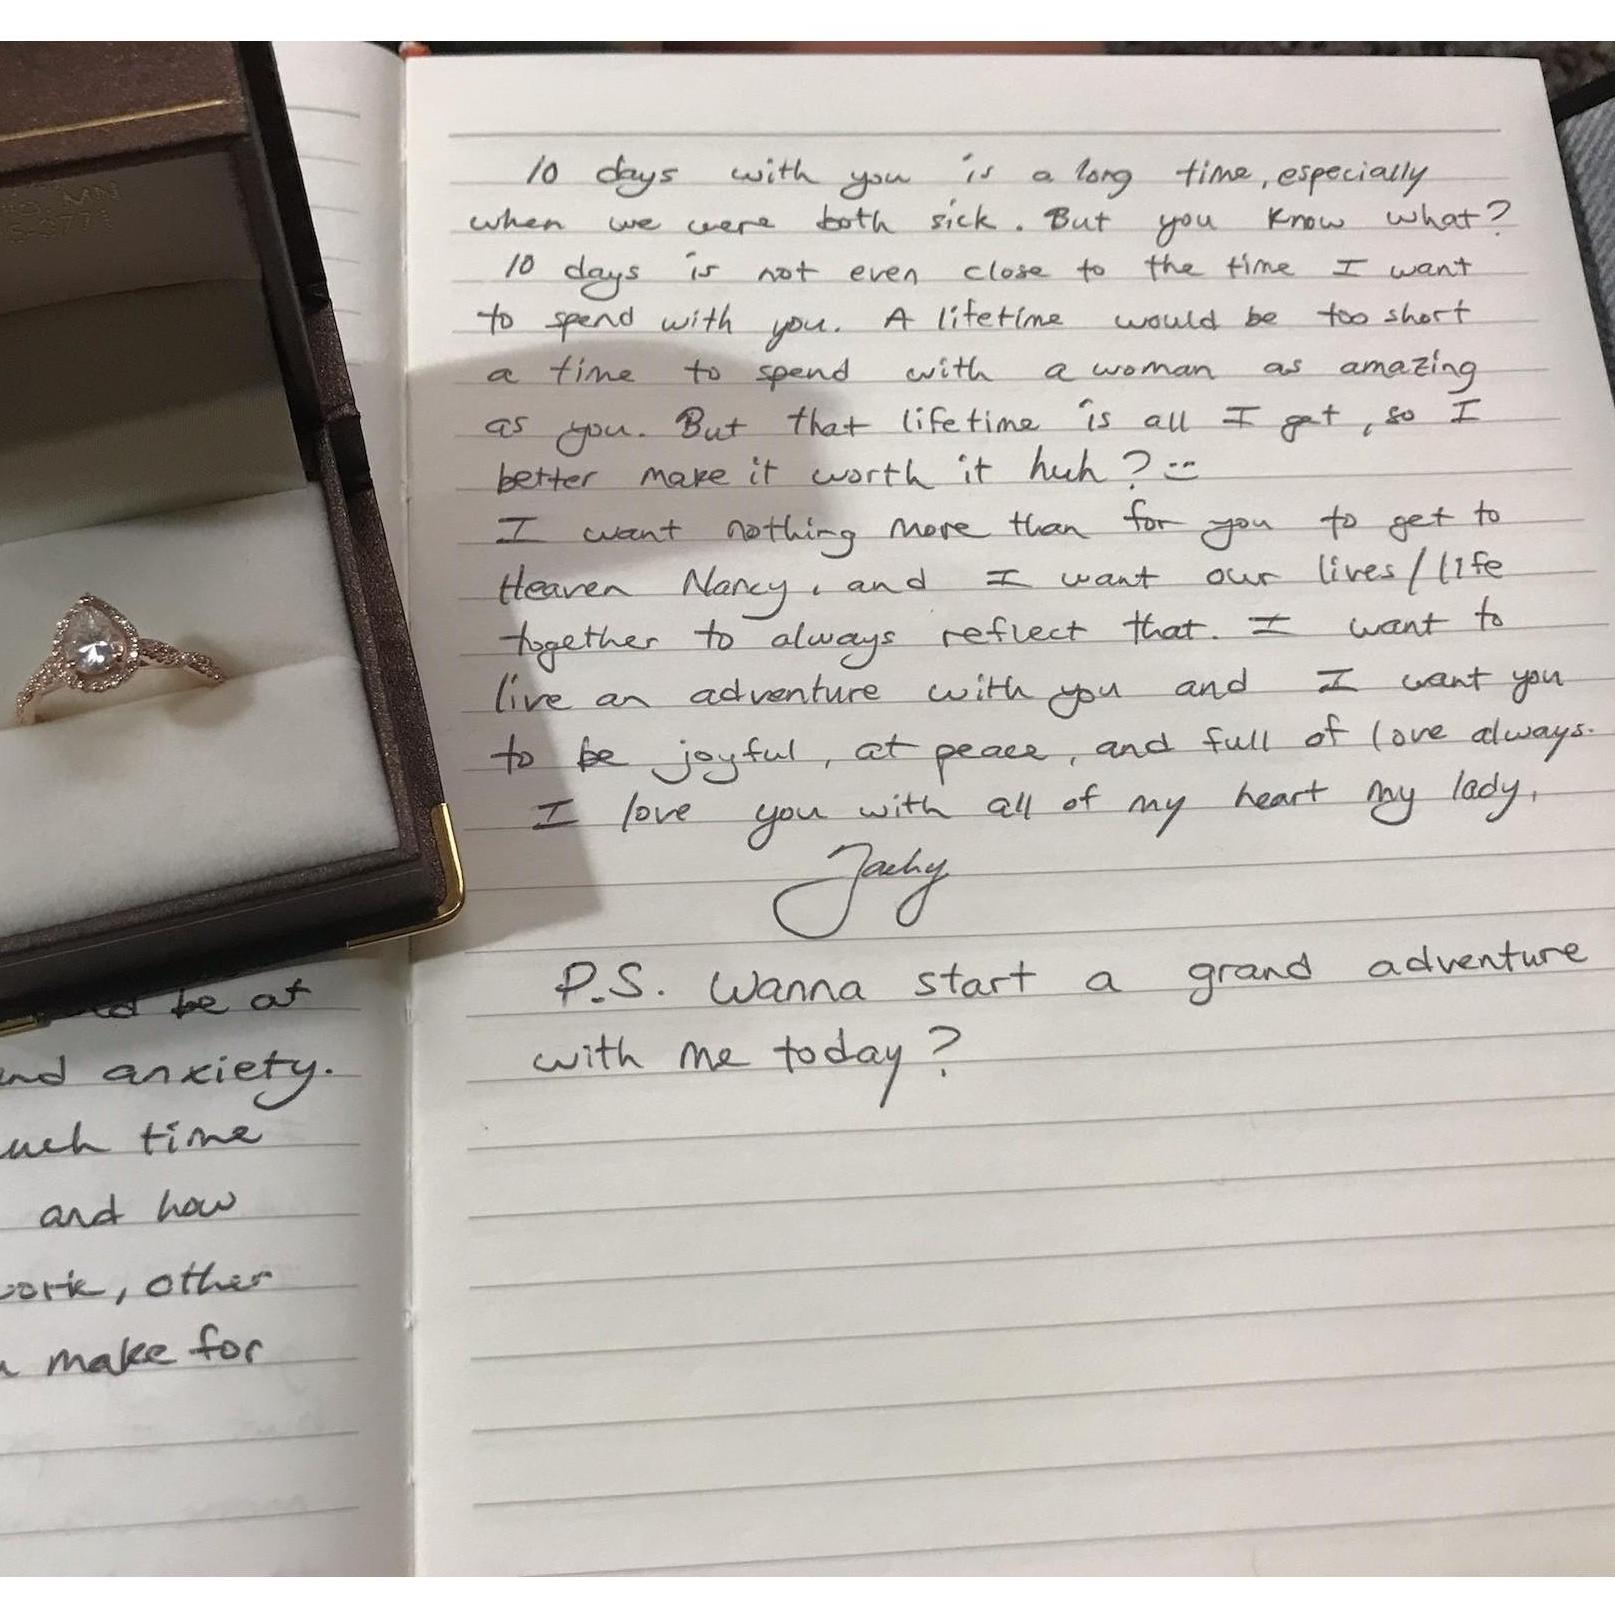 MN
-3771
10 days with you is a long time, especially
when we were both sick. But you know what?
10 days is not even close to the time I want
to spend with you. A lifetime would be too short
a time to spend with a woman as amazing
as you. But that lifetime is all I get, so I
better make it worth it huh? :)
I want nothing more than for you to get to
Heaven Nancy, and I want our lives/life
together to always reflect that. I want to
live an adventure with you and I want you
to be joyful, at peace, and full of love always.
I love you with all of my heart my lady,
P.S. Wanna start a grand adventure
with me today?
be at
and anxiety.
time
and how
work, other
make for